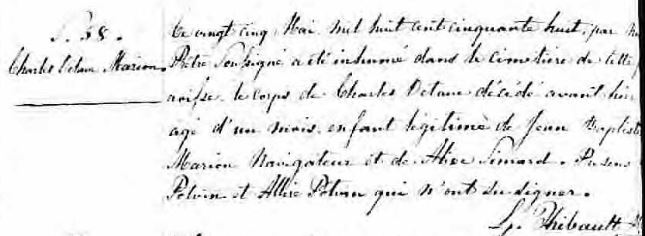 S. 38.
Charles Octave Marion
Le vingt cinq Mai mil huit cent cinquante huit, par
Prêtre Soussigné a été inhumé dans le cimetière de cette
roisse le corps de Charles Octave décédé avant hier
agé d'un mois, enfant légitime de Jean Baptiste
Marion Navigateur et de Simard.
Potvin et Potvin qui n'ont su signer.
Thibault